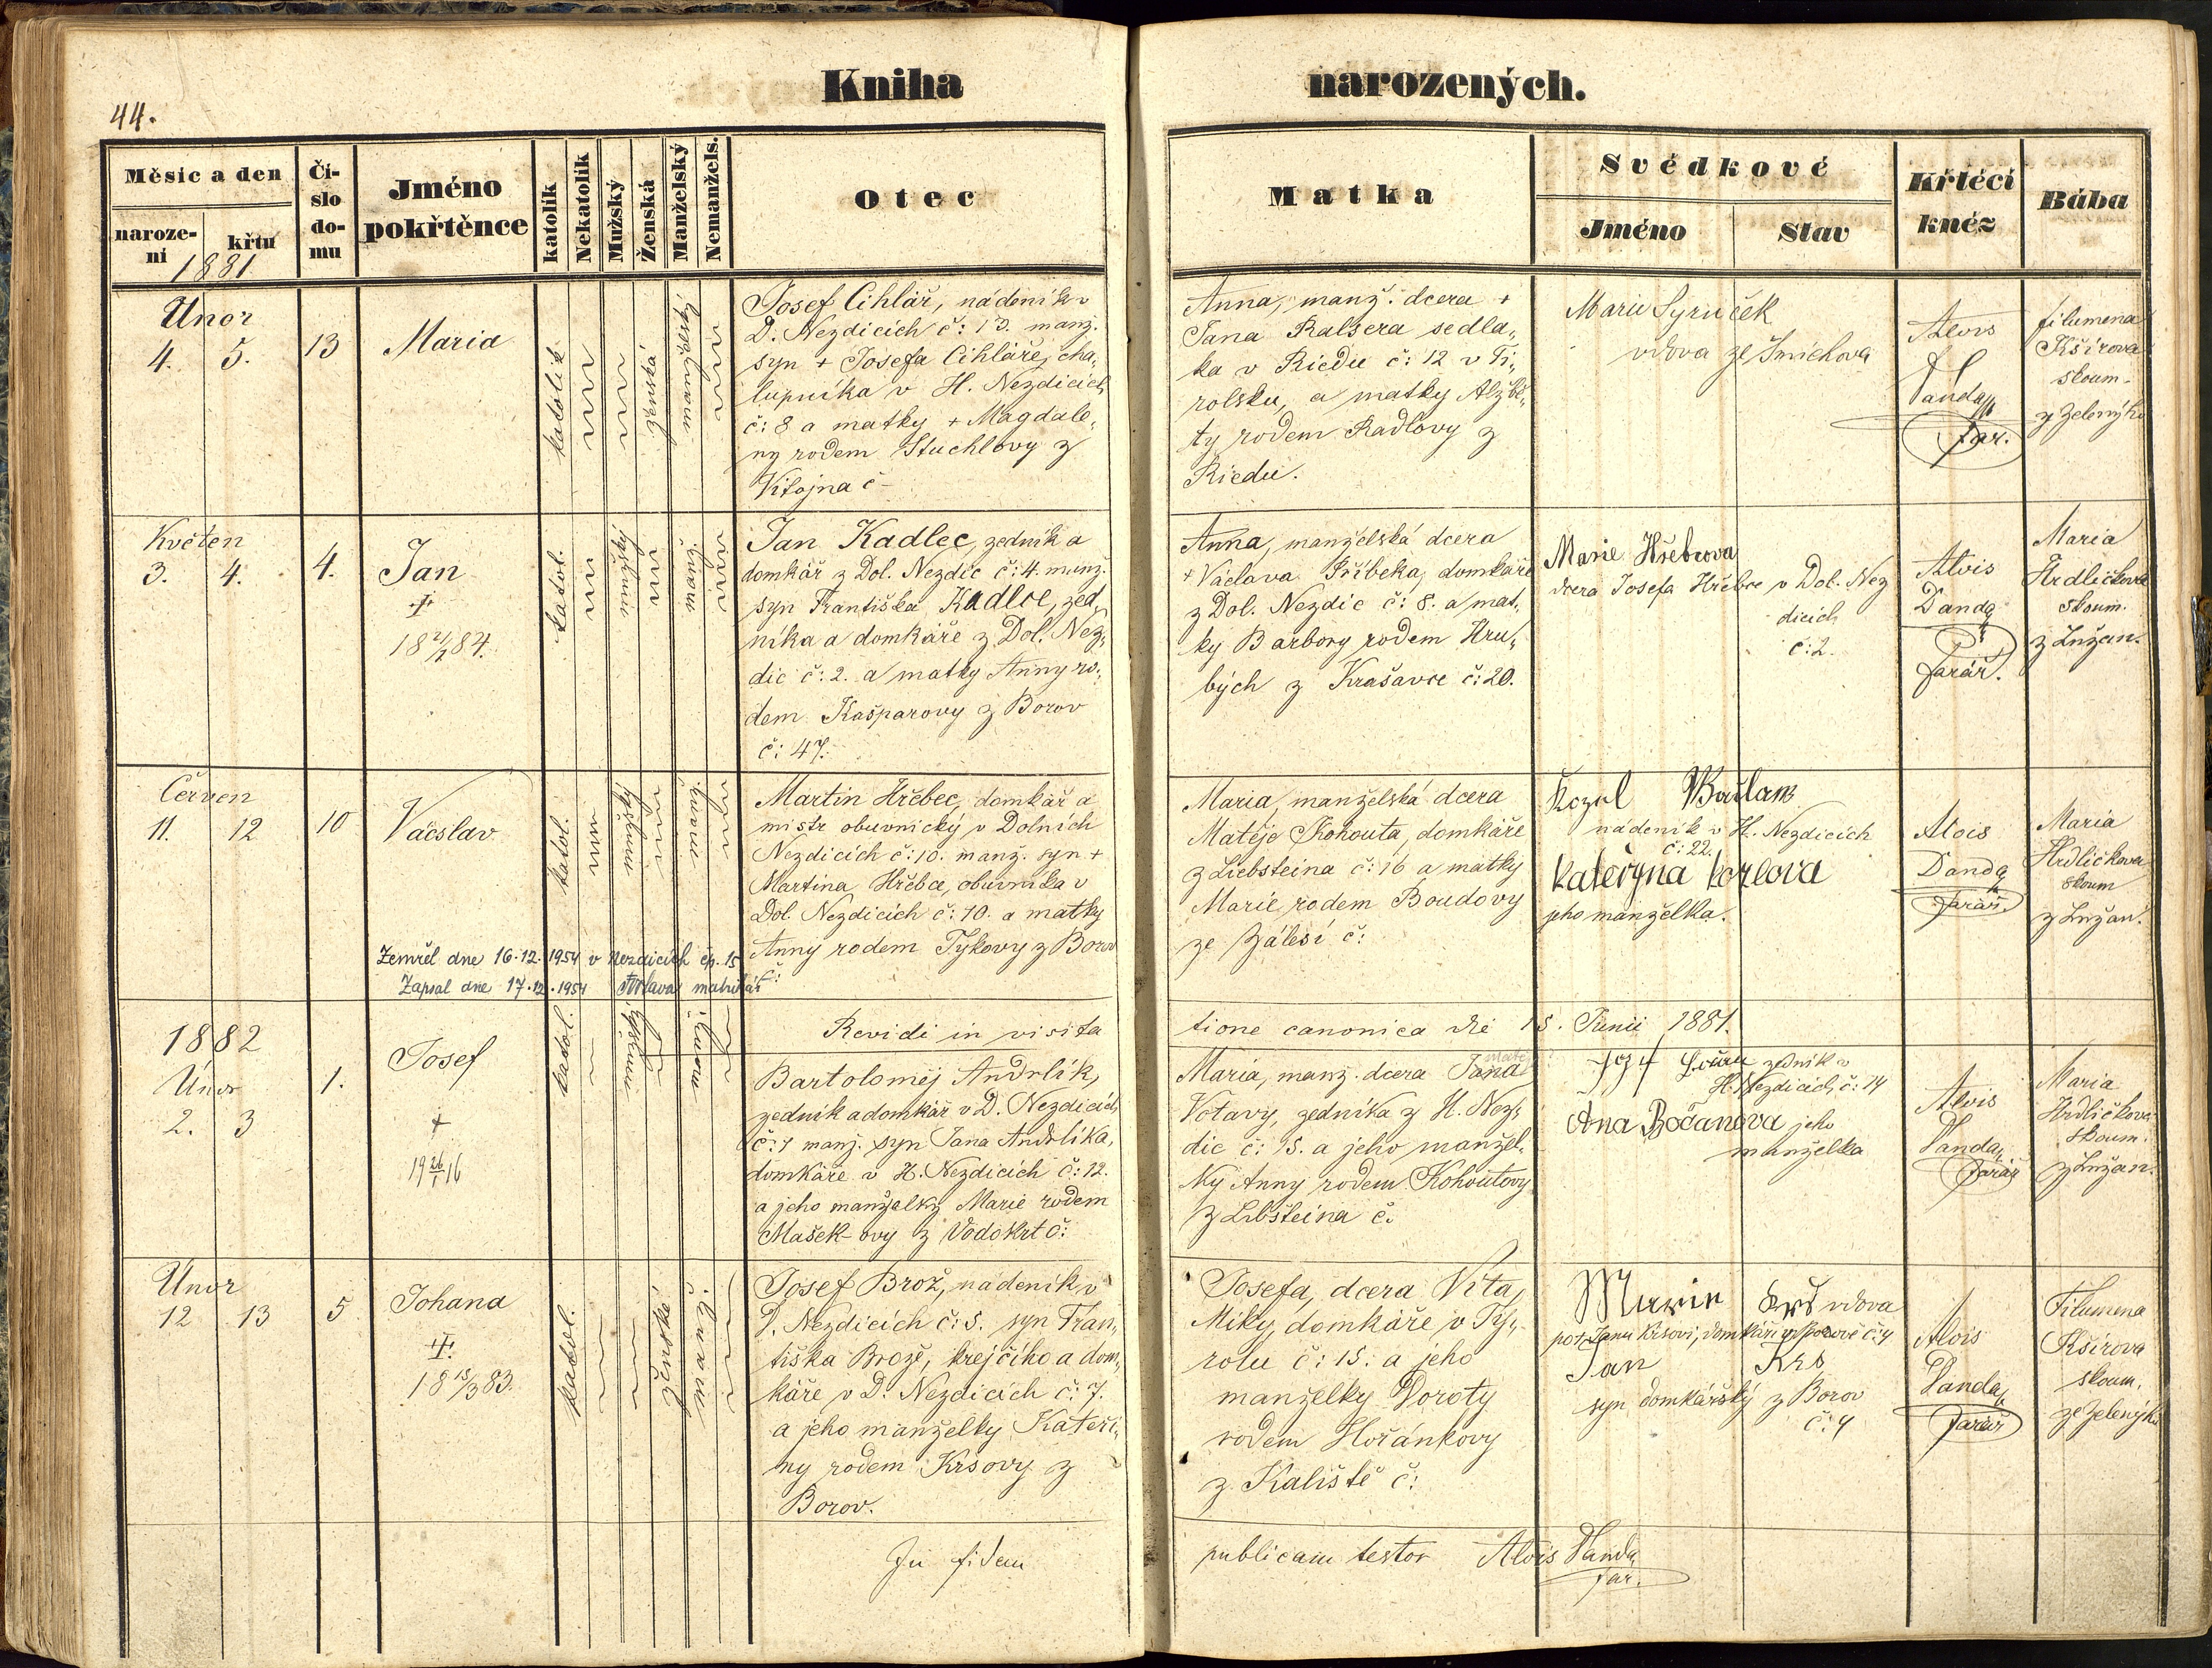 44.
Kniha narozených.
Měsíc a den
naroze-
ní
křtu
1881
Čí-
slo
do-
mu
Jméno
pokřtěnce
katolík
Nekatolík
Mužský
Ženská
Manželský
Nemanžels.
Otec
Matka
Svědkové
Jméno
Stav
Křtěcí
kněz
Bába
Únor
4. 5.
13
Maria
katolík
ženská
manželské
Josef Cihlář, nádeník v
D. Nezdicích č: 13. manž.
syn + Josefa Cihláře, cha„
lupníka v H. Nezdicích
č: 8 a matky + Magdale„
ny rodem Stuchlovy z
Vitojna č–
Anna, manž. dcera +
Jana Ralsera sedla„
ka v Riedu č: 12 v Ti„
rolsku, a matky Alzbě„
ty rodem Radlovy z
Riedu.
Marie Syruček
vdova ze Smíchova
Alois
Vanda
far.
Filumena
Kšírova
zkoum.
z Zeleného
Květen
3. 4.
4.
Jan
18 84.
katol.
mužský
manž.
Jan Kadlec, zedník a
domkář z Dol. Nezdic č: 4. manž.
syn Františka Kadlce, zed„
níka a domkáře z Dol. Nez„
dic č: 2. a matky Anny ro„
dem Kašparovy z Borov
č: 47.
Anna, manželská dcera
+ Václava Přibeka, domkáře
z Dol. Nezdic č: 8. a mat„
ky Barbory rodem Hru„
bých z Krašavce č: 20.
Marie Hřebcova
dcera Josefa Hřebce v Dol. Nez
dicích
č: 2.
Alois
Vanda
farář.
Maria
Hrdličkova
zkoum.
z Lužan.
Červen
11. 12
10
Vácslav
katol.
mužský
manž.
Martin Hřebec, domkář a
mistr obuvnický v Dolních
Nezdicích č: 10. manž. syn +
Martina Hřebce, obuvníka v
Dol. Nezdicích č: 10. a matky
Anny rodem Tykovy z Borov
č:
Zemřel dne 16.12.1954 v Nezdicích čp. 15
Zapsal dne 17.12.1954 matrikář
Maria, manželská dcera
Matěje Kohouta, domkáře
z Liebsteina č: 16 a matky
Marie, rodem Boudovy
ze Zálesí č:
Kozel
nádeník v H. Nezdicích
č: 22.
Kateřyna Kozlova
jeho manželka.
Alois
Vanda
farář.
Maria
Hrdličkova
zkoum
z Lužan.
Revidi in visita
tione canonica die 15. Junii 1881.
1882
Únor
2. 3
1.
Josef
+
19 26/1 16
katol.
mužský
Bartoloměj Andrlík,
zedník a domkář v D. Nezdicích
č: 1 manž. syn Jana Andrlíka,
domkáře v H. Nezdicích č: 12.
a jeho manželky Marie rodem
Mašek-ovy z Vodokrt č:
Maria, manž. dcera Jana
Votavy, zedníka z H. Nez„
dic č: 15. a jeho manžel„
ky Anny rodem Kohoutovy
z Libšteina č.
zedník v
H. Nezdicích, č: 14
Ana Bočanova jeho
manželka
Alois
Vanda
farář
Maria
Hrdličkova
zkoum.
z Lužan.
Únor
12 13
5
Johana
18 15/3 83.
katol.
ženské
manž.
Josef Brož, nádeník v
D. Nezdicích č: 5. syn Fran„
tiška Brože, krejčího a dom„
káře v D. Nezdicích č: 7.
a jeho manželky Kateři„
ny rodem Krsovy z
Borov.
Josefa, dcera Víta
Miky, domkáře v Ty„
rolu č: 15. a jeho
manželky Doroty
rodem Hořánkovy
z Kaliště č:
Marie Krs vdova
po Janu Krsovi, domkáři v Borově č: 4
Jan Krs
syn domkářský z Borov
č: 4
Alois
Vanda
farář
Filumena
Kšírova
zkoum.
ze Zeleného
In fidem
publicam testor Alois Vanda
far.